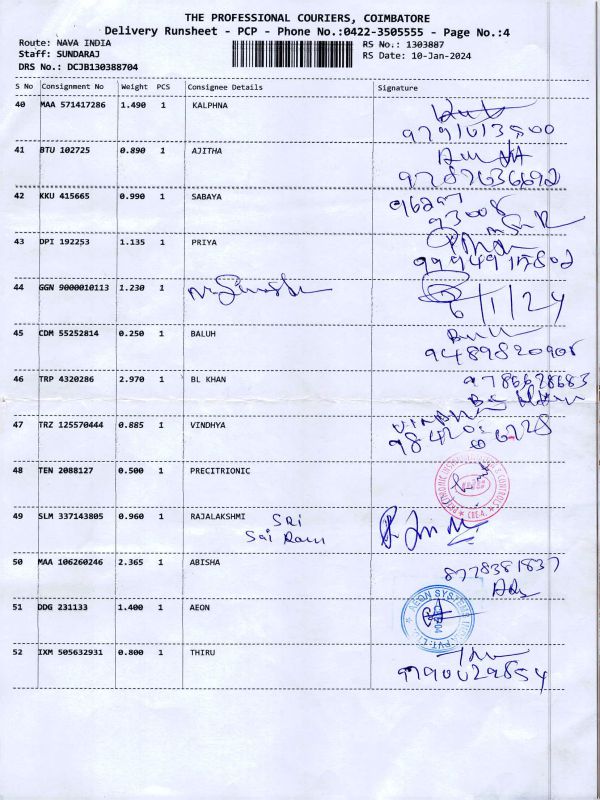 THE PROFESSIONAL COURIERS, COIMBATORE
Delivery Runsheet - PCP - Phone No.:0422-3505555 - Page No.:4
Route: NAVA INDIA
Staff: SUNDARAJ
DRS No.: DCJB130388704
RS No.: 1303887
RS Date: 10-Jan-2024
S No Consignment No Weight PCS Consignee Details Signature
40 MAA 571417286 1.490 1 KALPHNA
41 BTU 102725 0.890 1 AJITHA
9787636692
42 KKU 415665 0.990 1 SABAYA
43 DPI 192253 1.135 1 PRIYA
44 GGN 9000010113 1.230 1
6/1/24
45 CDM 55252814 0.250 1 BALUH
9489820908
46 TRP 4320286 2.970 1 BL KHAN
9786628683
47 TRZ 125570444 0.885 1 VINDHYA
48 TEN 2088127 0.500 1 PRECITRIONIC
49 SLM 337143805 0.960 1 RAJALAKSHMI SRI
Sai Ram
50 MAA 106260246 2.365 1 ABISHA
8778381837
51 DDG 231133 1.400 1 AEON
AEON SYSTEMS
52 IXM 505632931 0.800 1 THIRU
9790029854